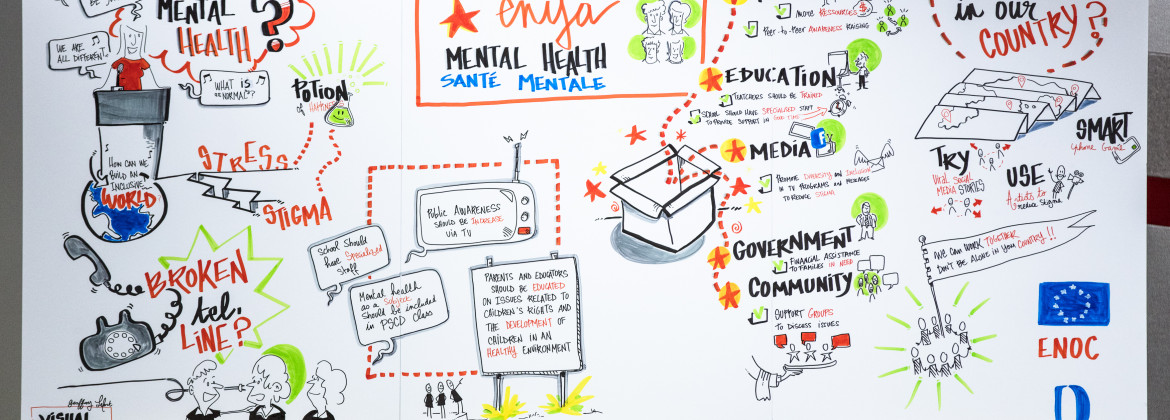 MENTAL
HEALTH?
WE ARE
ALL DIFFERENT.
WHAT IS
"NORMAL"??
HOW CAN WE
BUILD AN
INCLUSIVE
WORLD
STRESS
STIGMA
POTION
OF HAPPINESS
BROKEN
tel.
LINE?
VISUAL
enya
MENTAL HEALTH
SANTÉ MENTALE
PUBLIC AWARENESS
SHOULD BE INCREASE
VIA TV
School Should
have Specialized
Staff
Mental health
as a Subject
Should be included
in PSCD class
PARENTS AND EDUCATORS
SHOULD BE EDUCATED
ON ISSUES RELATED TO
CHILDREN'S RIGHTS AND
THE DEVELOPMENT OF
CHILDREN IN AN
HEALTHY ENVIRONMENT
MORE RESSOURCES
PEER-TO-PEER AWARENESS RAISING
EDUCATION
TEATCHERS SHOULD BE TRAINED
SCHOOL SHOULD HAVE SPECIALISED STAFF
TO PROVIDE SUPPORT IN GOOD TIME
MEDIA
PROMOTE DIVERSITY AND INCLUSION
IN TV PROGRAMS AND MESSAGES
TO REDUCE STIGMA
GOVERNMENT
FINANCIAL ASSISTANCE
TO FAMILIES IN NEED
COMMUNITY
SUPPORT GROUPS
TO DISCUSS ISSUES
in our
COUNTRY?
SMART
phone Game
TRY
Viral Social
MEDIA STORIES
USE
Artists to
reduce Stigma
WE CAN WORK TOGETHER
DON'T BE ALONE IN YOUR COUNTRY!!
ENOC